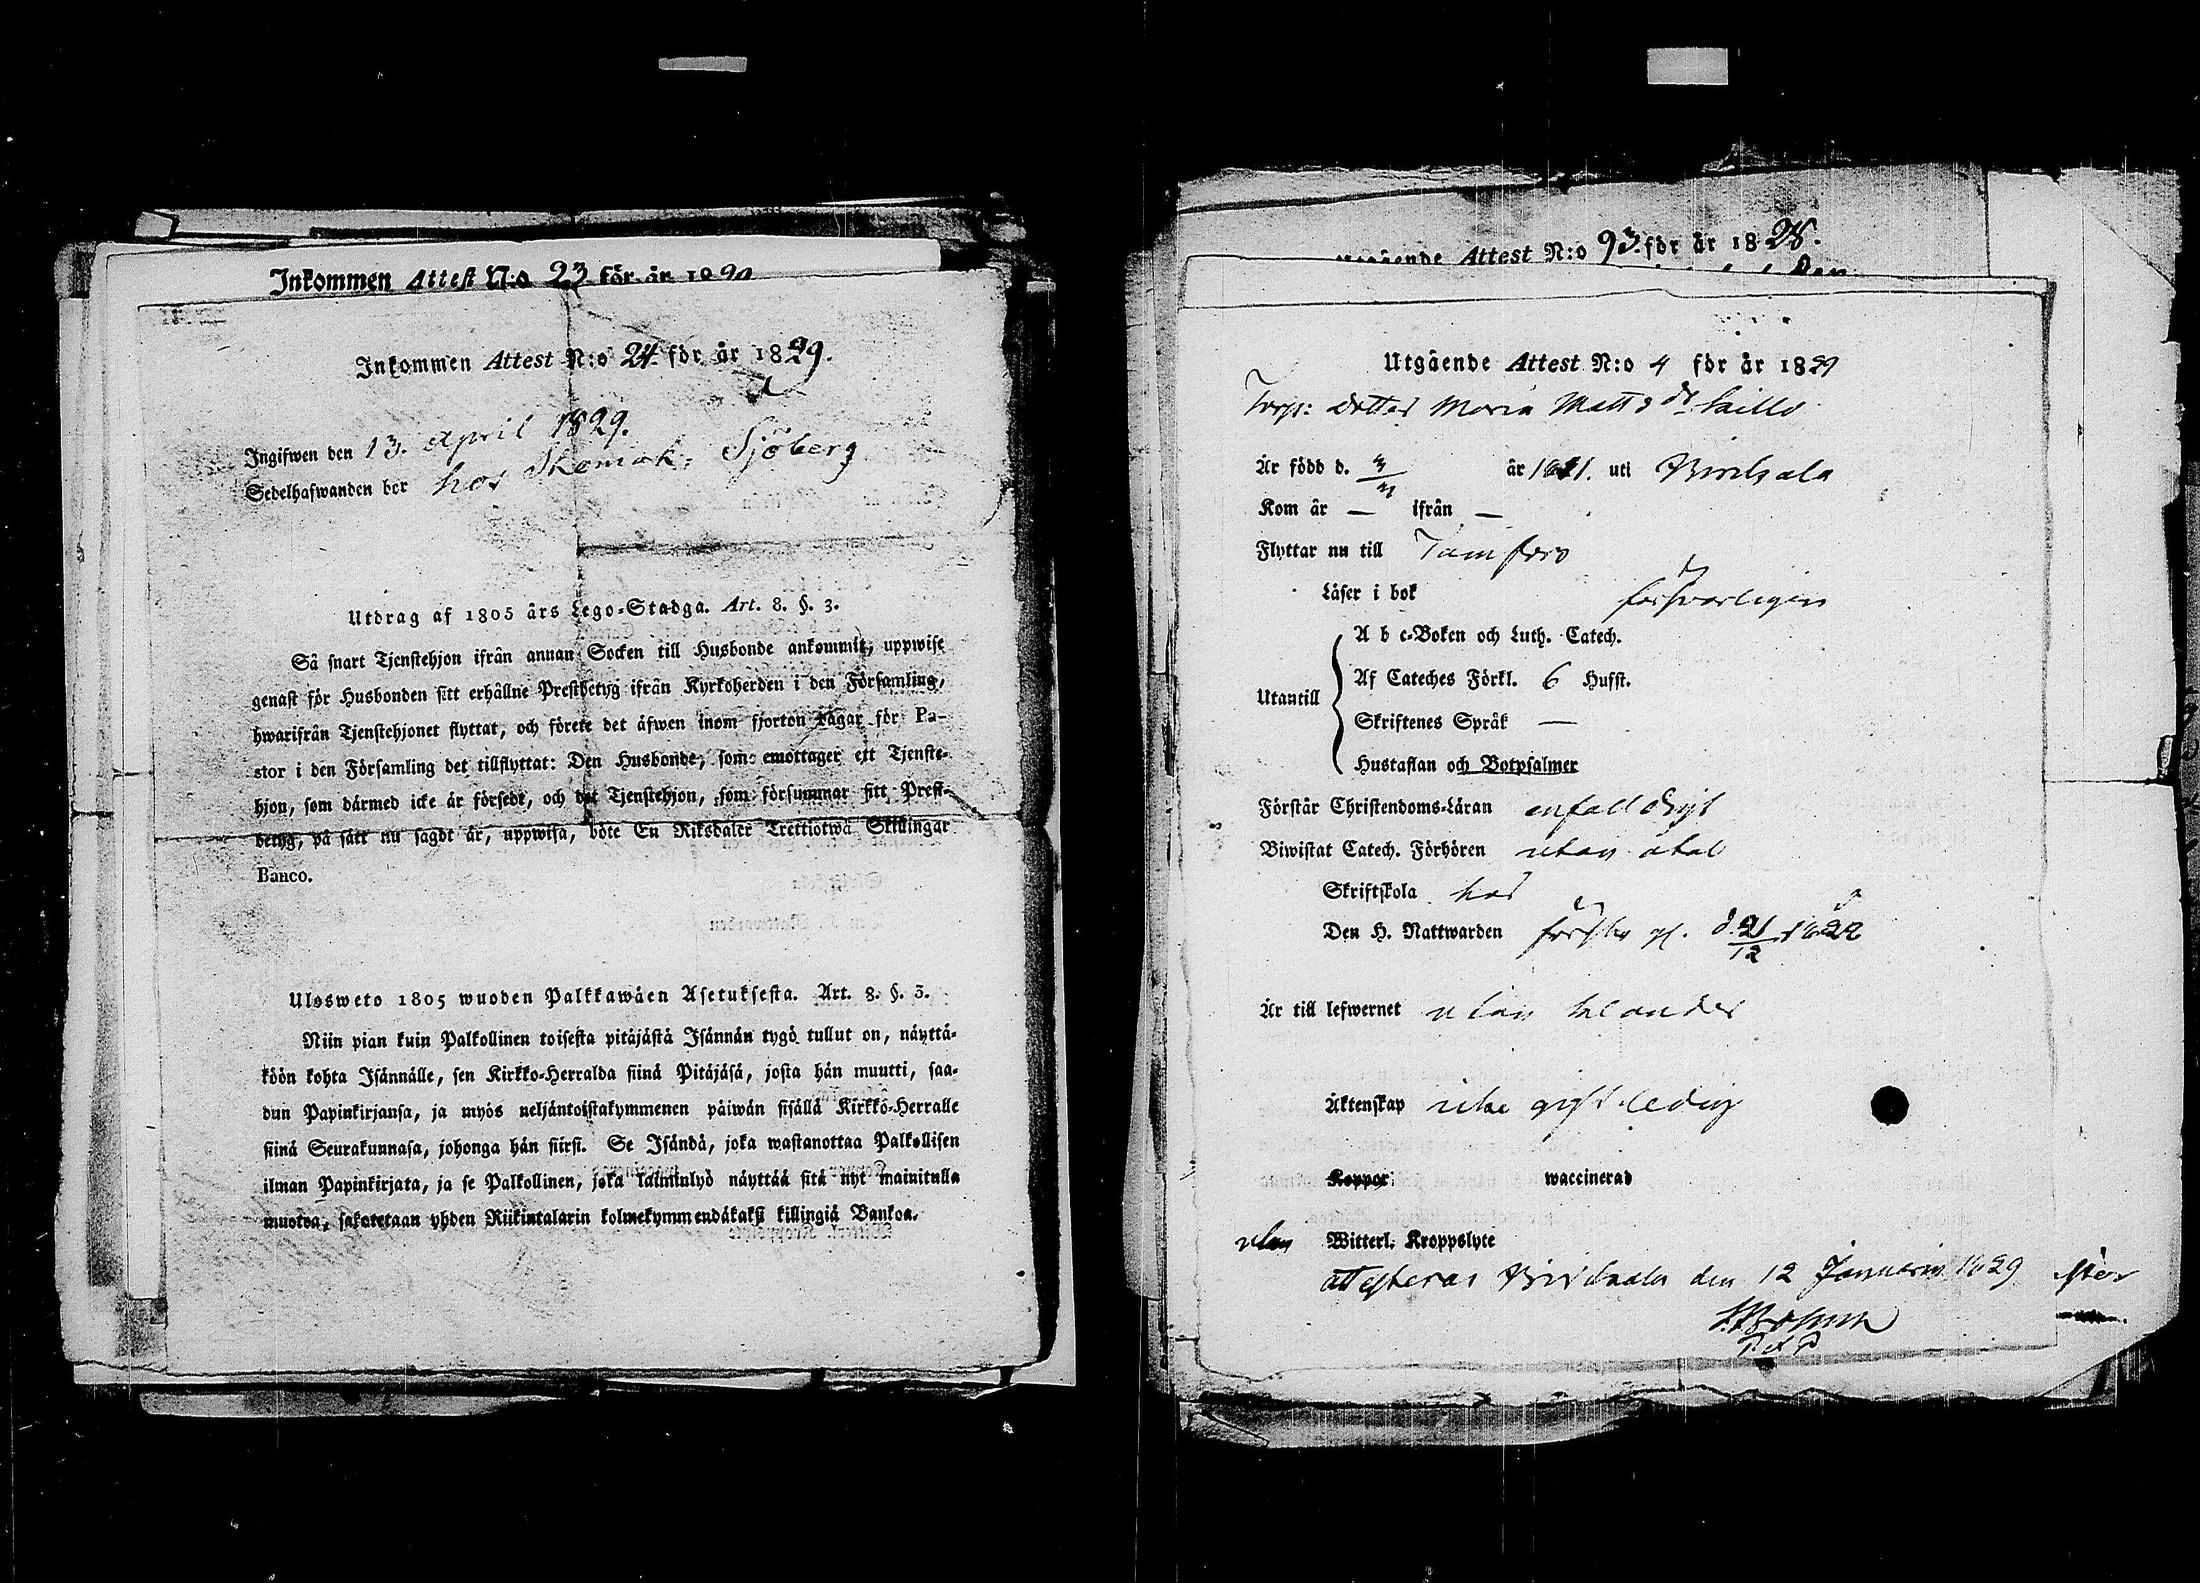 Inkommen Attest N:o 23 för år 1829
Inkommen Attest N:o 24 för år 1829.
Ingifwen den 13. April 1829.
Sedelhafwanden bor hos Skomak. Sjöberg
Utdrag af 1805 års Lego-Stadga. Art. 8. §. 3.
Så snart Tjenstehjon ifrån annan Socken till Husbonde ankommit, uppwise
genast för Husbonden sitt erhållne Prestbetyg ifrån Kyrkoherden i den Församling,
hwarifrån Tjenstehjonet flyttat, och förete det äfwen inom fjorton dagar för Pa-
stor i den Församling det tillflyttat: Den Husbonde, som emottager ett Tjenste-
hjon, som därmed icke är försedt, och det Tjenstehjon, som försummar sitt Prest-
betyg, på sätt nu sagdt är, uppwisa, böte En Riksdaler Trettiotwå Skillingar
Banco.
Ulosweto 1805 wuoden Palkkawäen Asetuksesta. Art. 8. §. 3.
Niin pian kuin Palkollinen toisesta pitäjästä Isännän tygö tullut on, näyttä-
köön kohta Isännälle, sen Kirkko-Herralda siinä Pitäjäsä, josta hän muutti, saa-
dun Papinkirjansa, ja myös neljäntoistakymmenen päiwän sisällä Kirkko-Herralle
siinä Seurakunnasa, johonga hän siirsi. Se Isändä, joka wastanottaa Palkollisen
ilman Papinkirjata, ja se Palkollinen, joka laiminlyö näyttää sitä nyt mainitulla
muotoa, sakotetaan yhden Riikintalarin kolmekymmendäkaksi killingiä Bankoa.
Utgående Attest N:o 93 för år 1828.
Utgående Attest N:o 4 för år 1829
Torp: Dotter Maria Matts dr
Är född d. år 1811. uti Birckala
Kom år — ifrån —
Flyttar nu till Tamfors
Läser i bok försvarligen
A b c-Boken och Luth. Catech.
Af Cateches Förkl. 6 Hufst.
Utantill
Skriftenes Språk —
Hustaflan och Botpsalmer
Förstår Christendoms-Läran enfalldigt
Biwistat Catech. Förhören utan åtal
Skriftskola har
Den H. Nattwarden första g. d. 21/12 1828
Är till lefwernet utan klander
Äktenskap icke gift. ledig
Koppor waccinerad
utan Witterl. Kroppslyte
attesteras Birckala den 12 Januarii 1829